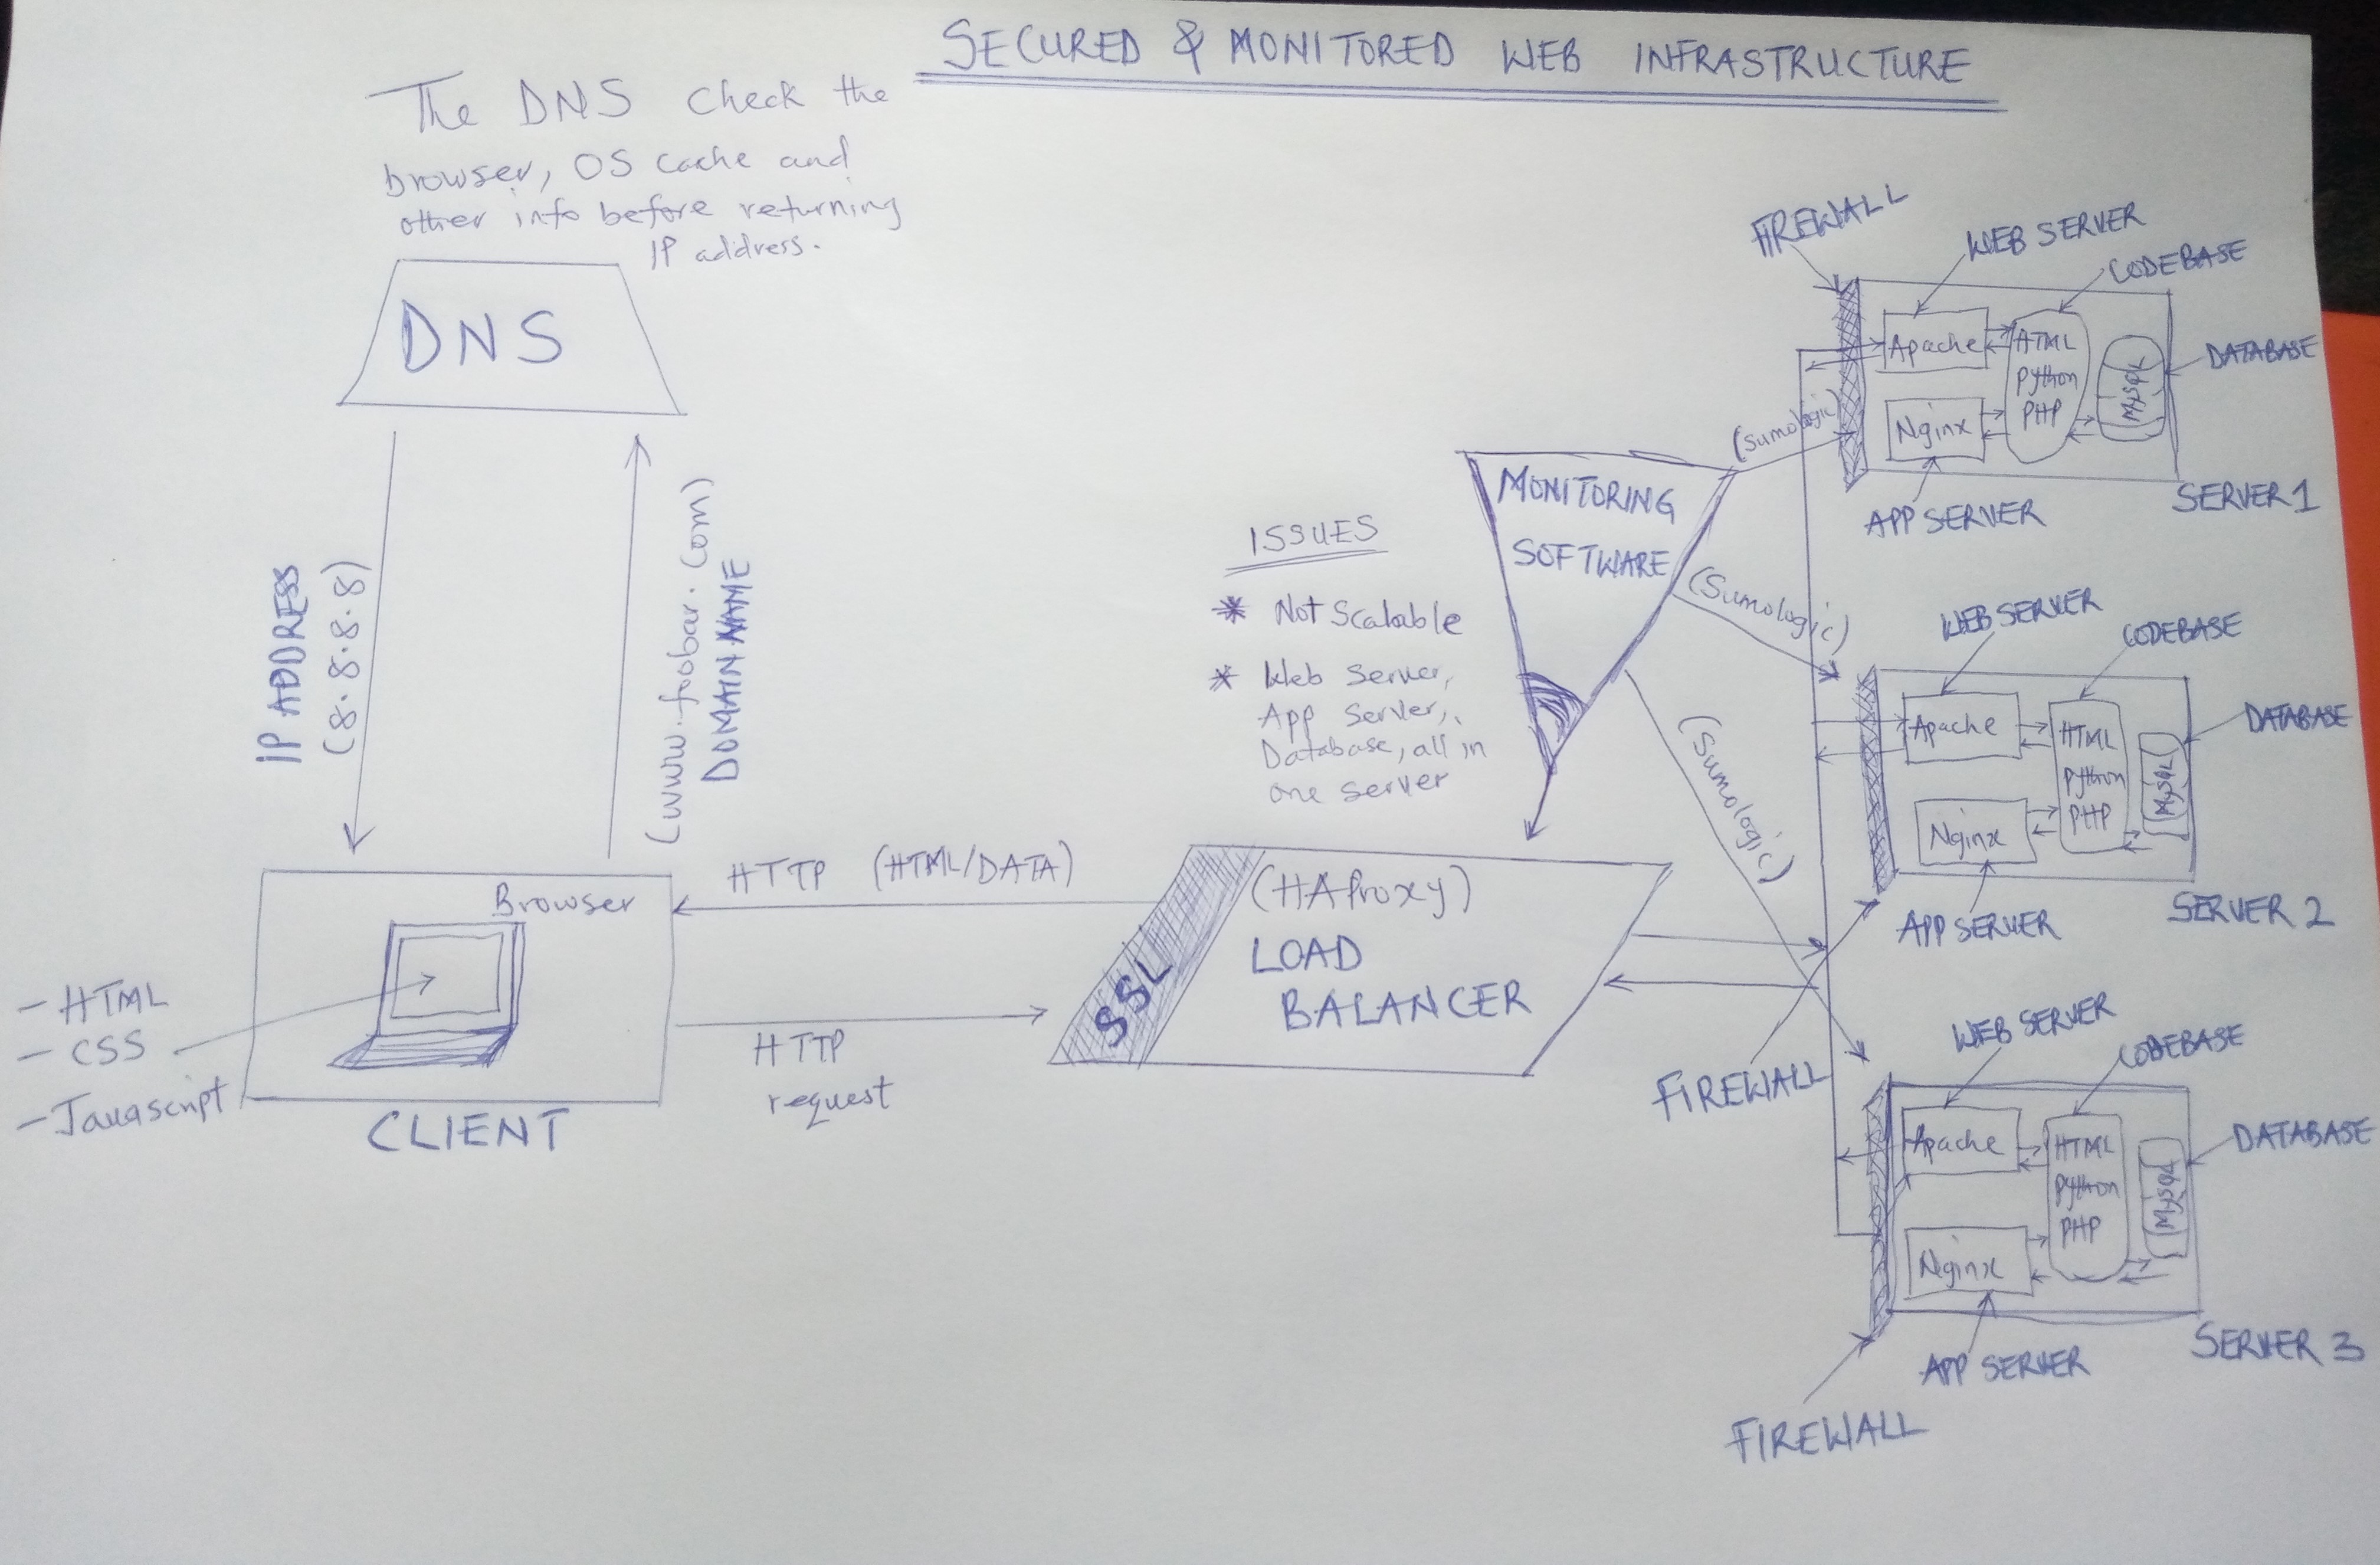 SECURED & MONITORED WEB INFRASTRUCTURE
The DNS check the
browser, OS cache and
other info before returning
IP address.
DNS
IP ADDRESS
(8.8.8.8)
(www.foobar.com)
DOMAIN NAME
Browser
- HTML
- CSS
- Javascript
CLIENT
HTTP (HTML/DATA)
HTTP
request
SSL
(HAProxy)
LOAD
BALANCER
ISSUES
* Not Scalable
* Web Server,
App Server,
Database, all in
one server
MONITORING
SOFTWARE
(Sumologic)
(Sumologic)
(Sumologic)
FIREWALL
WEB SERVER
CODEBASE
DATABASE
Apache
HTML
Python
PHP
MySQL
Nginx
APP SERVER
SERVER 1
WEB SERVER
CODEBASE
DATABASE
Apache
HTML
Python
PHP
MySQL
Nginx
APP SERVER
SERVER 2
FIREWALL
WEB SERVER
CODEBASE
DATABASE
Apache
HTML
Python
PHP
MySQL
Nginx
APP SERVER
SERVER 3
FIREWALL